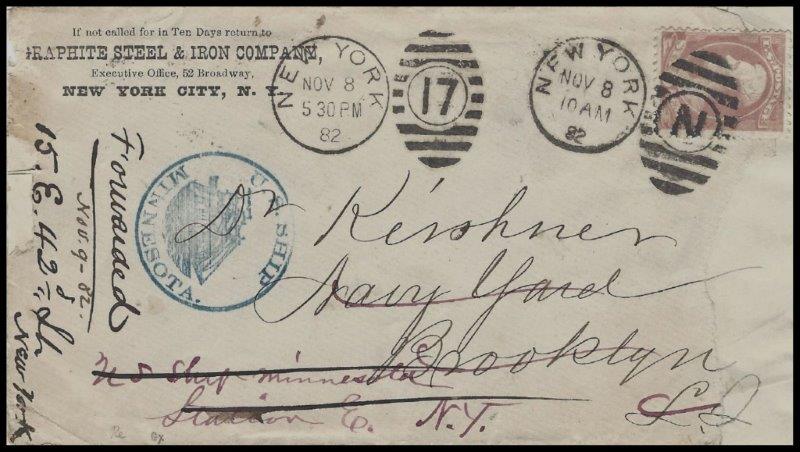 If not called for in Ten Days return to
GRAPHITE STEEL & IRON COMPANY,
Executive Office, 52 Broadway,
NEW YORK CITY, N. Y.
NEW YORK
NOV 8
5 30 PM
82
17
NEW YORK
NOV 8
10 AM
82
N
U.S. SHIP
MINNESOTA.
Dr Kershner
Navy Yard
Brooklyn
L I
U S Ship Minnesota
Station E. N.Y.
Forwarded
Nov. 9 - 82.
15. E. 42nd St
New York